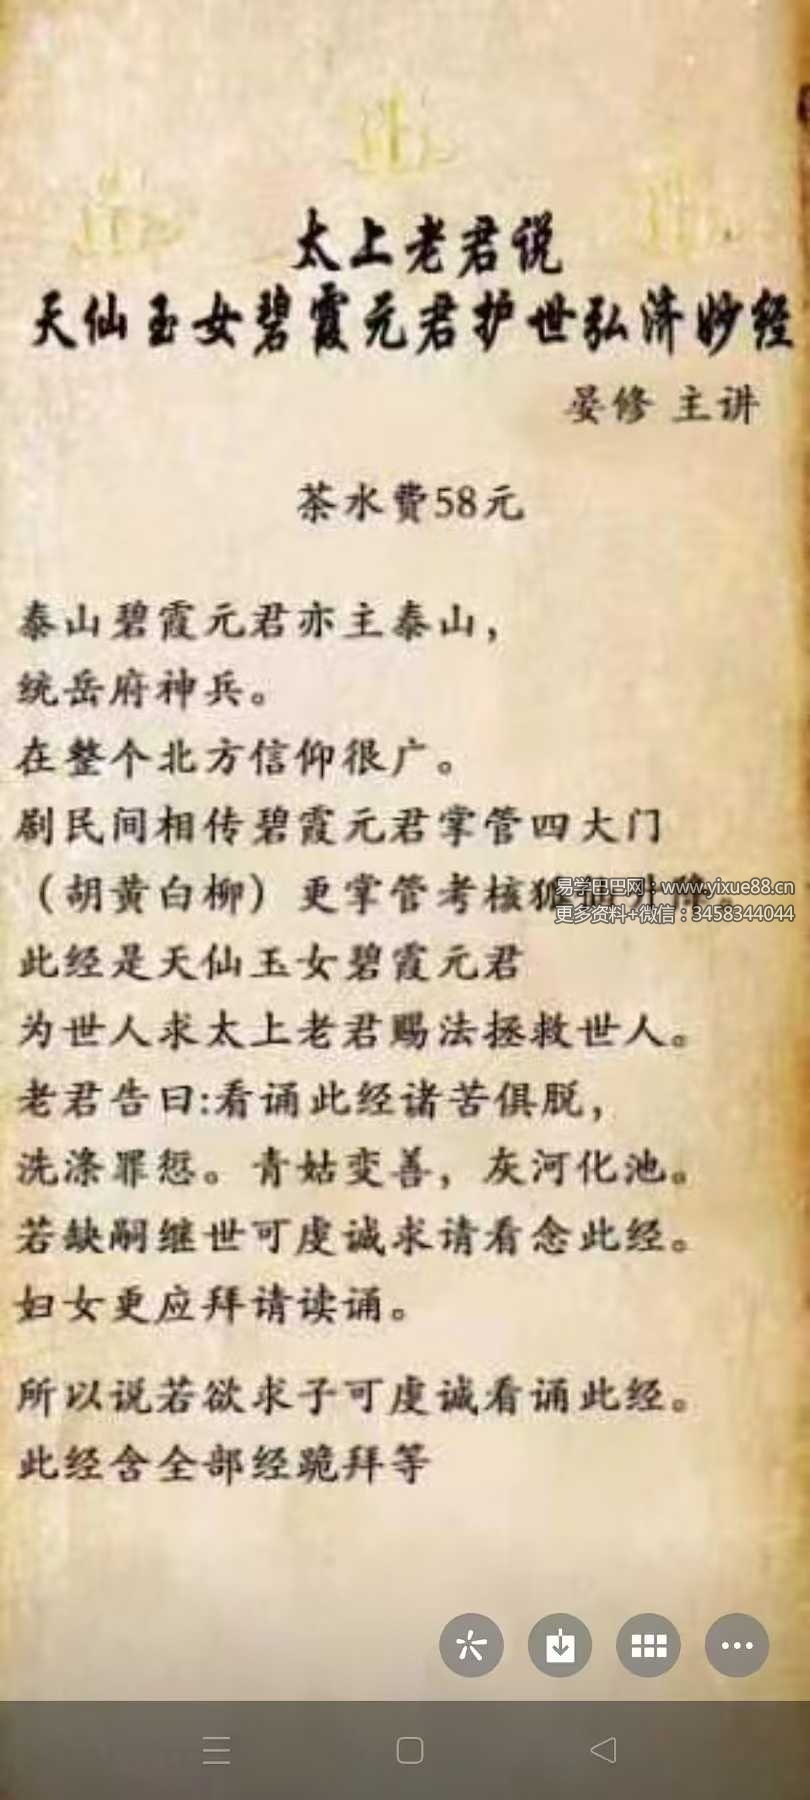 太上老君说
天仙玉女碧霞元君护世弘济妙经
晏修 主讲
茶水费58元
泰山碧霞元君亦主泰山，
统岳府神兵。
在整个北方信仰很广。
剧民间相传碧霞元君掌管四大门
（胡黄白柳）更掌管考核
易学巴巴网：www.yixue88.cn
更多资料+微信：3458344044
此经是天仙玉女碧霞元君
为世人求太上老君赐法拯救世人。
老君告曰:看诵此经诸苦俱脱，
洗涤罪愆。青姑变善，灰河化池。
若缺嗣继世可虔诚求请看念此经。
妇女更应拜请读诵。
所以说若欲求子可虔诚看诵此经。
此经含全部经跪拜等